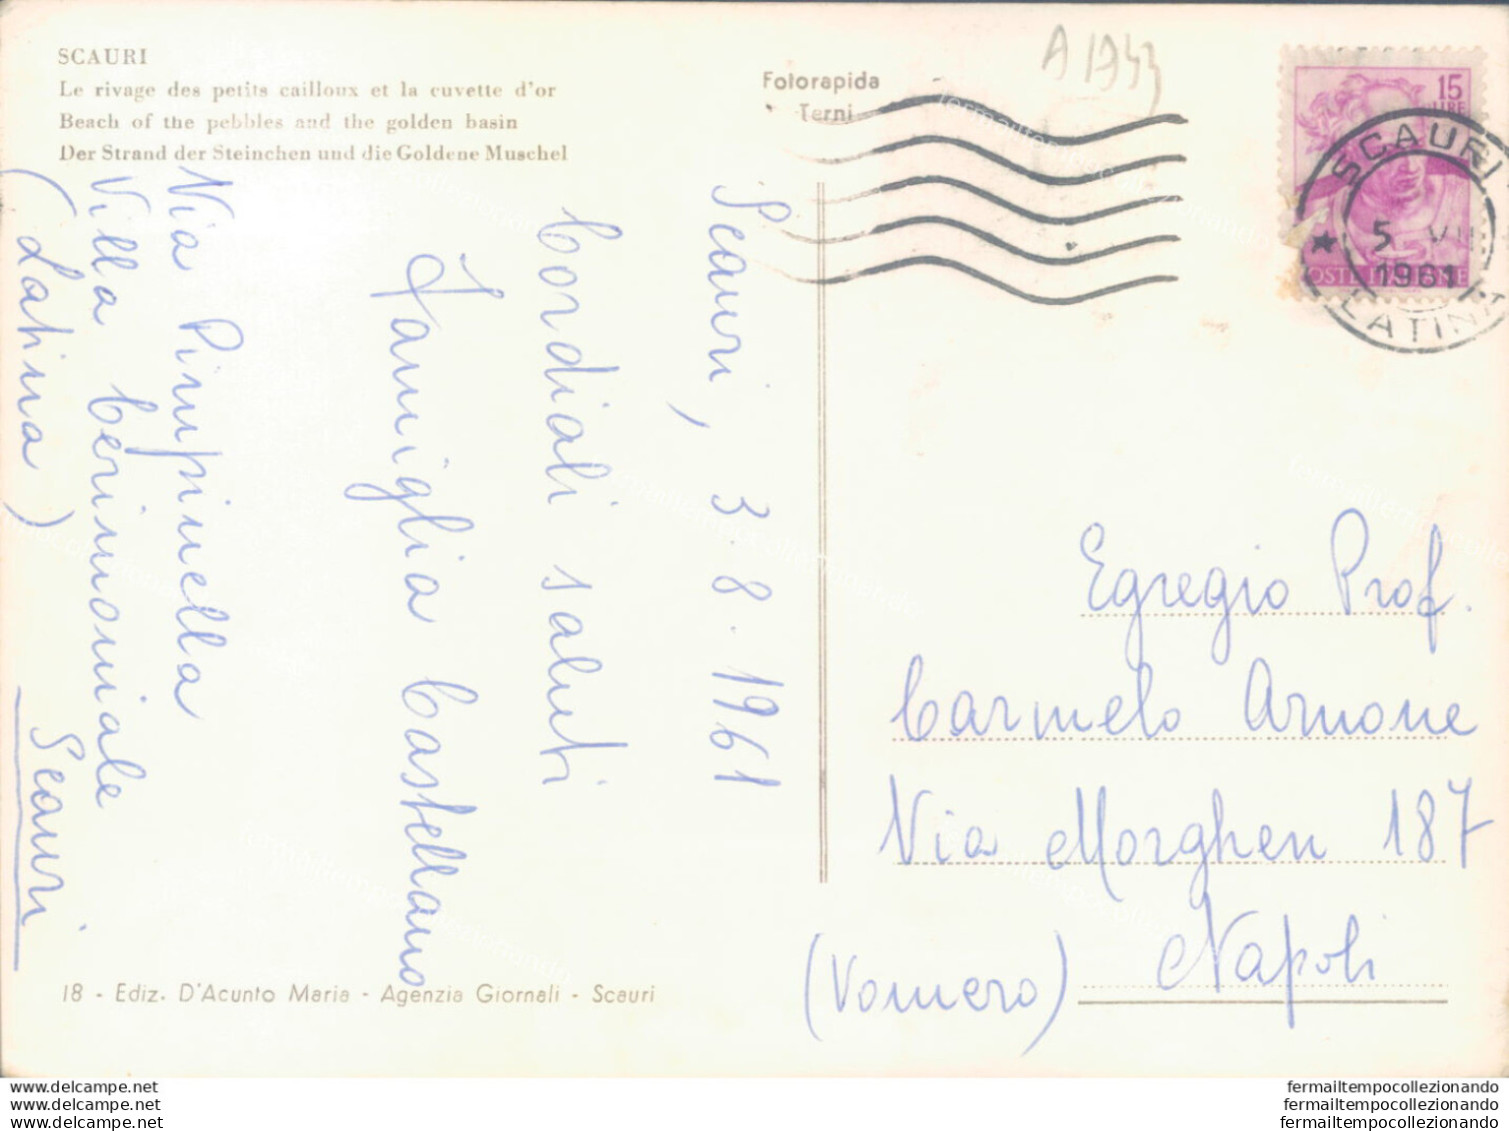 SCAURI
Le rivage des petits cailloux et la cuvette d'or
Beach of the pebbles and the golden basin
Der Strand der Steinchen und die Goldene Muschel
Fotorapida
Terni
A 1943
15
LIRE
POSTE ITALIANE
SCAURI
5 VII
1961
LATINA
Scauri, 3.8.1961
Cordiali saluti
Famiglia Castellano
Via Pimpinella
Villa Cerimoniale
(Latina) Scauri
Egregio Prof.
Carmelo Arnone
Via Morghen 187
Napoli
(Vomero)
18 - Ediz. D'Acunto Maria - Agenzia Giornali - Scauri
www.delcampe.net
www.delcampe.net
www.delcampe.net
fermailtempocollezionando
fermailtempocollezionando
fermailtempocollezionando